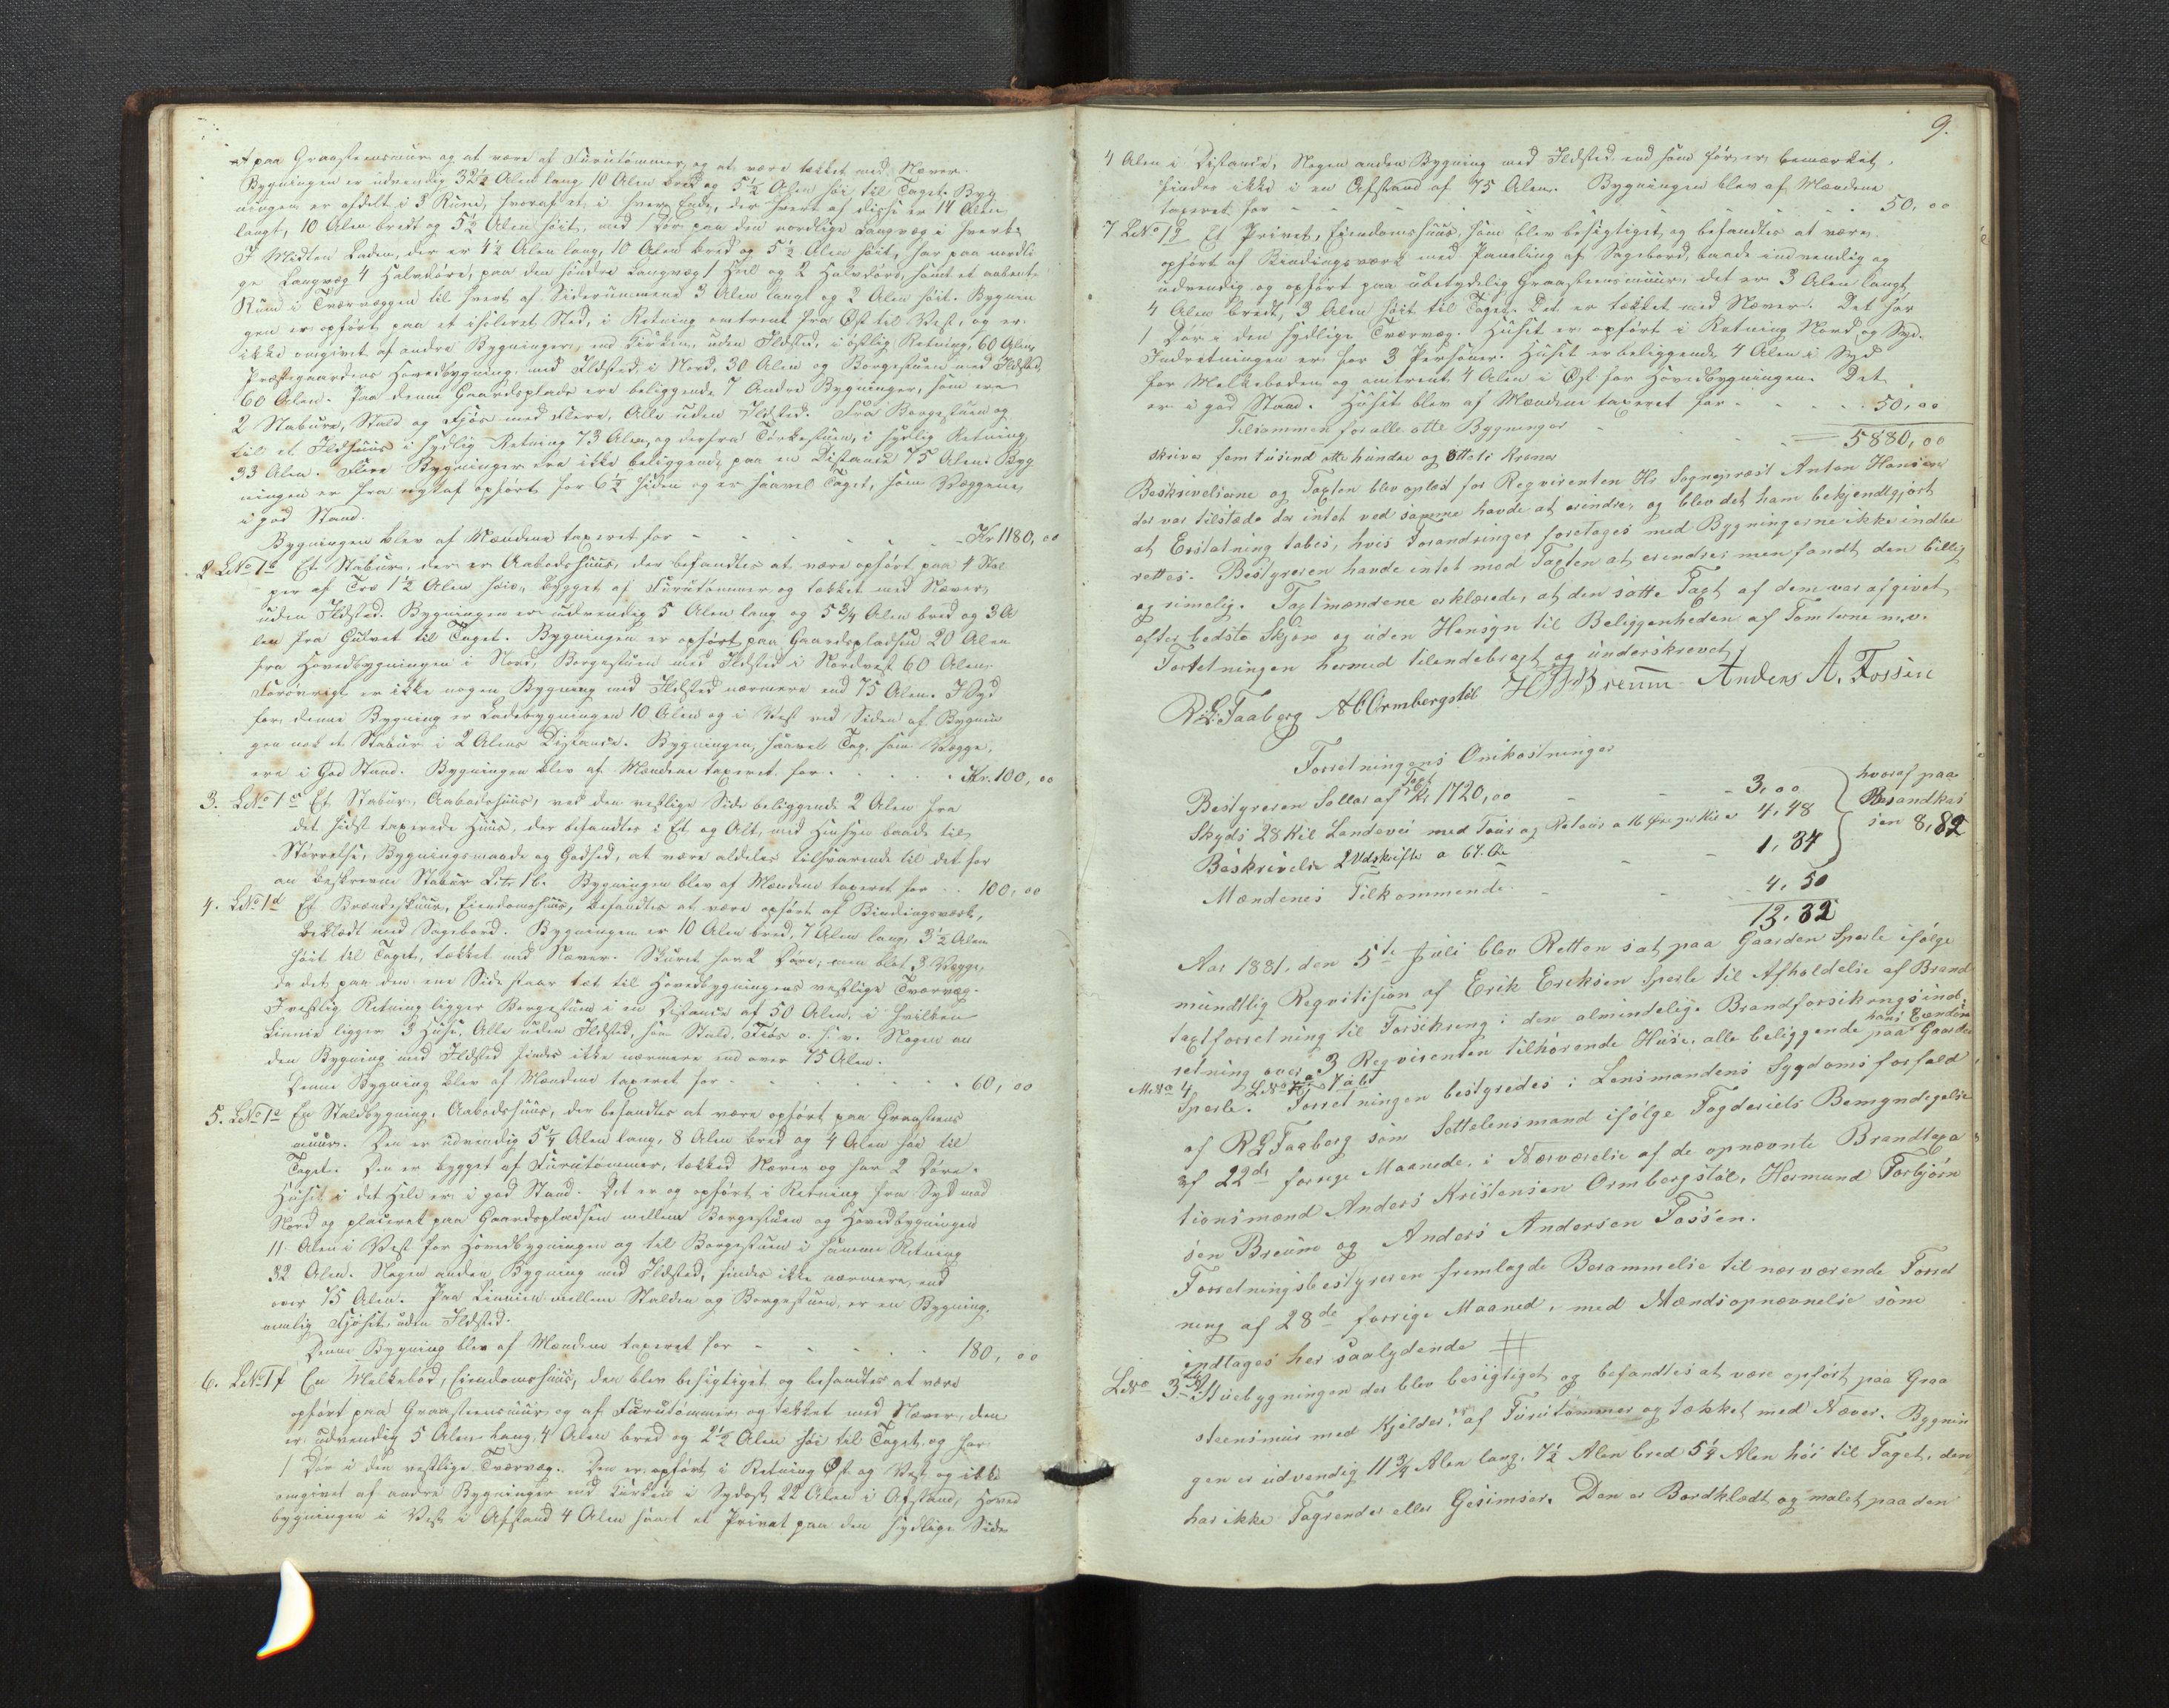 et paa Graasteensmuur og at være af Furutømmer, og at være tækket med Næver.
Bygningen er udvendig 32½ Alen lang 10 Alen bred og 5½ Alen høi til Taget. Byg
ningen er afdelt i 3 Rum, hvoraf et i hver Ende, der hvert af disse er 14 Alen
langt, 10 Alen bredt og 5½ Alen høit, med 1 Dør paa den nordlige Langvæg i hvert.
I Midten Laden, der er 4½ Alen lang, 10 Alen bred og 5½ Alen høit, har paa nordli
ge Langvæg 4 Halvdøre, paa den søndre Langvæg 1 Heel og 2 Halvdøre, samt et aabent
Rum i Tværvæggen til hvert af Siderummene 3 Alen langt og 2 Alen høit. Bygnin
gen er opført paa et isoleret Sted, i Retning omtrent fra Øst til Vest, og er
ikke omgivet af andre Bygninger, end Kirken, uden Ildsted, i østlig Retning, 60 Alen,
Præstegaardens Hovedbygning med Ildsted, i Nord, 30 Alen og Borgestuen med Ildsted
60 Alen. Paa denne Gaardsplads ere beliggende 7 Andre Bygninger, som ere
2 Stabure, Stald og Fjøs med flere, Alle uden Ildsted. Fra Borgestuen og
til et Ildhuus i sydlig Retning 73 Alen, og derfra Tørkestuen, i sydlig Retning
33 Alen. Flere Bygninger ere ikke beliggende paa en Distance 75 Alen. Byg
ningen er fra nytaf opført for 6½ siden og er saavel Taget, som Væggene,
i god Stand.
Bygningen blev af Mændene taxeret for - - - Kr 1180,00
2 LNo 1b Et Stabur, der er Aabodshuus, der befandtes at være opført paa 4 Stol
per af Træ 1½ Alen høie, bygget af Furutømmer og tækket med Næver,
uden Ildsted. Bygningen er udvendig 5 Alen lang og 5¾ Alen bred og 3 A
len fra Gulvet til Taget. Bygningen er opført paa Gaardspladsen 20 Alen
fra Hovedbygningen i Nord, Borgestuen med Ildsted i Nordvest 60 Alen.
Forøvrigt er ikke nogen Bygning med Ildsted nærmere end 75 Alen. I Syd
for denne Bygning er Ladebygningen 10 Alen og i Vest ved Siden af Bygnin
gen nok et Stabur i 2 Alens Distance. Bygningen, saavel Tag, som Vægge,
ere i God Stand. Bygningen blev af Mændene taxeret for - - - Kr. 100,00
3. LNo 1c Et Stabur, Aabodshuus, ved den vestlige Side beliggende 2 Alen fra
det sidst taxerede Huus, der befandtes i Et og Alt, med Hensyn baade til
Størrelse, Bygningsmaade og Godhed, at være aldeles tilsvarende til det for
an beskrevne Stabur Litr 1b. Bygningen blev af Mændene taxeret for - - 100,00
4. LNo 1d Et Brændeskuur, Eiendomshuus, befandtes at være opført af Bindingsværk,
beklædt med Sagebord. Bygningen er 10 Alen bred, 7 Alen lang, 3½ Alen
høit til Taget, tækket med Næver. Skuret har 2 Døre, men blot 3 Vægge,
da det paa den ene Side staar tæt til Hovedbygningens vestlige Tværvæg.
I vestlig Retning ligger Borgestuen i en Distance af 50 Alen, i hvilken
Linnie ligger 3 Huse, Alle uden Ildsted, som Stald, Fiøs o. s. v. Nogen an
den Bygning med Ildsted findes ikke nærmere end over 75 Alen.
Denne Bygning blev af Mændene taxeret for - - - 60,00
5. LNo 1e En Staldbygning, Aabodshuus, der befandtes at være opført paa Graasteens
muur. Den er udvendig 5¼ Alen lang, 8 Alen bred og 4 Alen høi til
Taget. Den er bygget af Furutømmer, tækked Næver og har 2 Døre.
Huset i det Hele er i god Stand. Det er og opført i Retning fra Syd mod
Nord og placeret paa Gaardspladsen mellem Borgestuen og Hovedbygningen
11 Alen i Vest for Hovedbygningen og til Borgestuen i samme Retning
32 Alen. Nogen anden Bygning med Ildsted, findes ikke nærmere, end
over 75 Alen. Paa Linnien mellem Stalden og Borgestuen, er en Bygning,
nemlig Fjøset, uden Ildsted.
Denne Bygning blev af Mændene taxeret for - - - 180,00
6. LNo 1f En Melkebod, Eiendomshuus, den blev besigtiget og befandtes at være
opført paa Graasteensmuur, og af Furutømmer, og tækket med Næver, den
er udvendig 5 Alen lang, 4 Alen bred og 2½ Alen høi til Taget, og har
1 Dør i den vestlige Tværvæg. Den er opført i Retning Øst og Vest og ikke
omgivet af andre Bygninger end Kirken i Sydost 22 Alen i Afstand, Hoved
bygningen i Vest i Afstand 4 Alen samt et Privet paa den sydlige Side
9.
4 Alen i Distance, Nogen anden Bygning med Ildsted end som før er bemærket,
findes ikke i en Afstand af 75 Alen. Bygningen blev af Mændene
taxeret for - - - 50,00
7 LNo 1g Et Privet, Eiendomshuus, som blev besigtiget og befandtes at være
opført af Bindingsværk med Paneling af Sagebord, baade indvendig og
udvendig og opført paa ubetydelig Graasteensmuur, det er 3 Alen langt,
4 Alen bredt, 3 Alen høit til Taget. Det er tækket med Næver. Det har
1 Dør i den sydlige Tværvæg. Huset er opført i Retning Nord og Syd.
Indretningen er for 3 Personer. Huset er beliggende 4 Alen i Syd
for Melkeboden og omtrent 4 Alen i Øst for Hovedbygningen. Det
er i god Stand. Huset blev af Mændene taxeret for - - - 50,00
Tilsammen for alle otte Bygninger - - - 5880,00
skriver fem tusind otte hundre og otteti Kroner
Beskrivelserne og Taxten blev oplæst for Reqvirenten Hr Sognepræst Anton Hansen
der var tilstæde der intet ved samme havde at erindre, og blev det ham bekjendtgjort
at Erstatning tabes, hvis Forandringer foretages med Bygningerne ikke indbe
rettes. Bestyreren havde intet mod Taxten at erindre; men fandt den billig
og rimelig. Taxtmændene erklærede, at den satte Taxt af dem var afgivet
efter bedste Skjøn og uden Hensyn til Beliggenheden af Tomterne m.v.
Forretningen hermed tilendebragt og underskrevet,
R L Faaberg A C Ormbergstøl H T Breum Anders A. Fossen
Forretningens Omkostninger
Bestyreren Sallar af Taxt Kr 1720,00 - - - 3,00
Skyds 28 Kil Landevei med Tour og Retour a 16 Øre per Kil = 4,48
Beskrivelse 2 Udskrifter a 67. Øre - - 1,34
hvoraf paa
Brandkas
sen 8,82
Mændenes Tilkommende - - 4,50
13,32
Aar 1881, den 5te Juli blev Retten sat paa Gaarden Sperle ifølge
mundtlig Reqvitision af Erik Eriksen Sperle til Afholdelse af Brand
taxtforretning til Forsikreng i den almindelige Brandforsikrngsind
retning over 3 Reqvirenten tilhørende Huse, alle beliggende paa hans Eiendom Gaarden
MNo 4 LNo 3 a 1 a b
Sperle. Forretningen bestyredes i Lensmandens Sygdomsforfald
af R L Faaberg som Settelensmand ifølge Fogderiets Bemyndigelse
af 22de forrige Maanede, i Nærværelse af de opnævnte Brandtaxa
tionsmænd Anders Kristensen Ormbergstøl, Hermund Torbjørn
sen Breum og Anders Andersen Fossen.
Forretningsbestyreren fremlagde Berammelse til nærværende Forret
ning af 28de forrige Maaned, med Mændsopnævnelse som
indtages her saalydende #
LNo 3a Stuebygningen der blev besigtiget og befandtes at være opført paa Graa
steensmur med Kjelder, af Furutømmer og tækket med Næver. Bygnin
gen er udvendig 11¾ Alen lang, 7½ Alen bred 5¼ Alen høi til Taget, den
har ikke Tagrender eller Gesimser. Den er Bordklædt og malet paa den